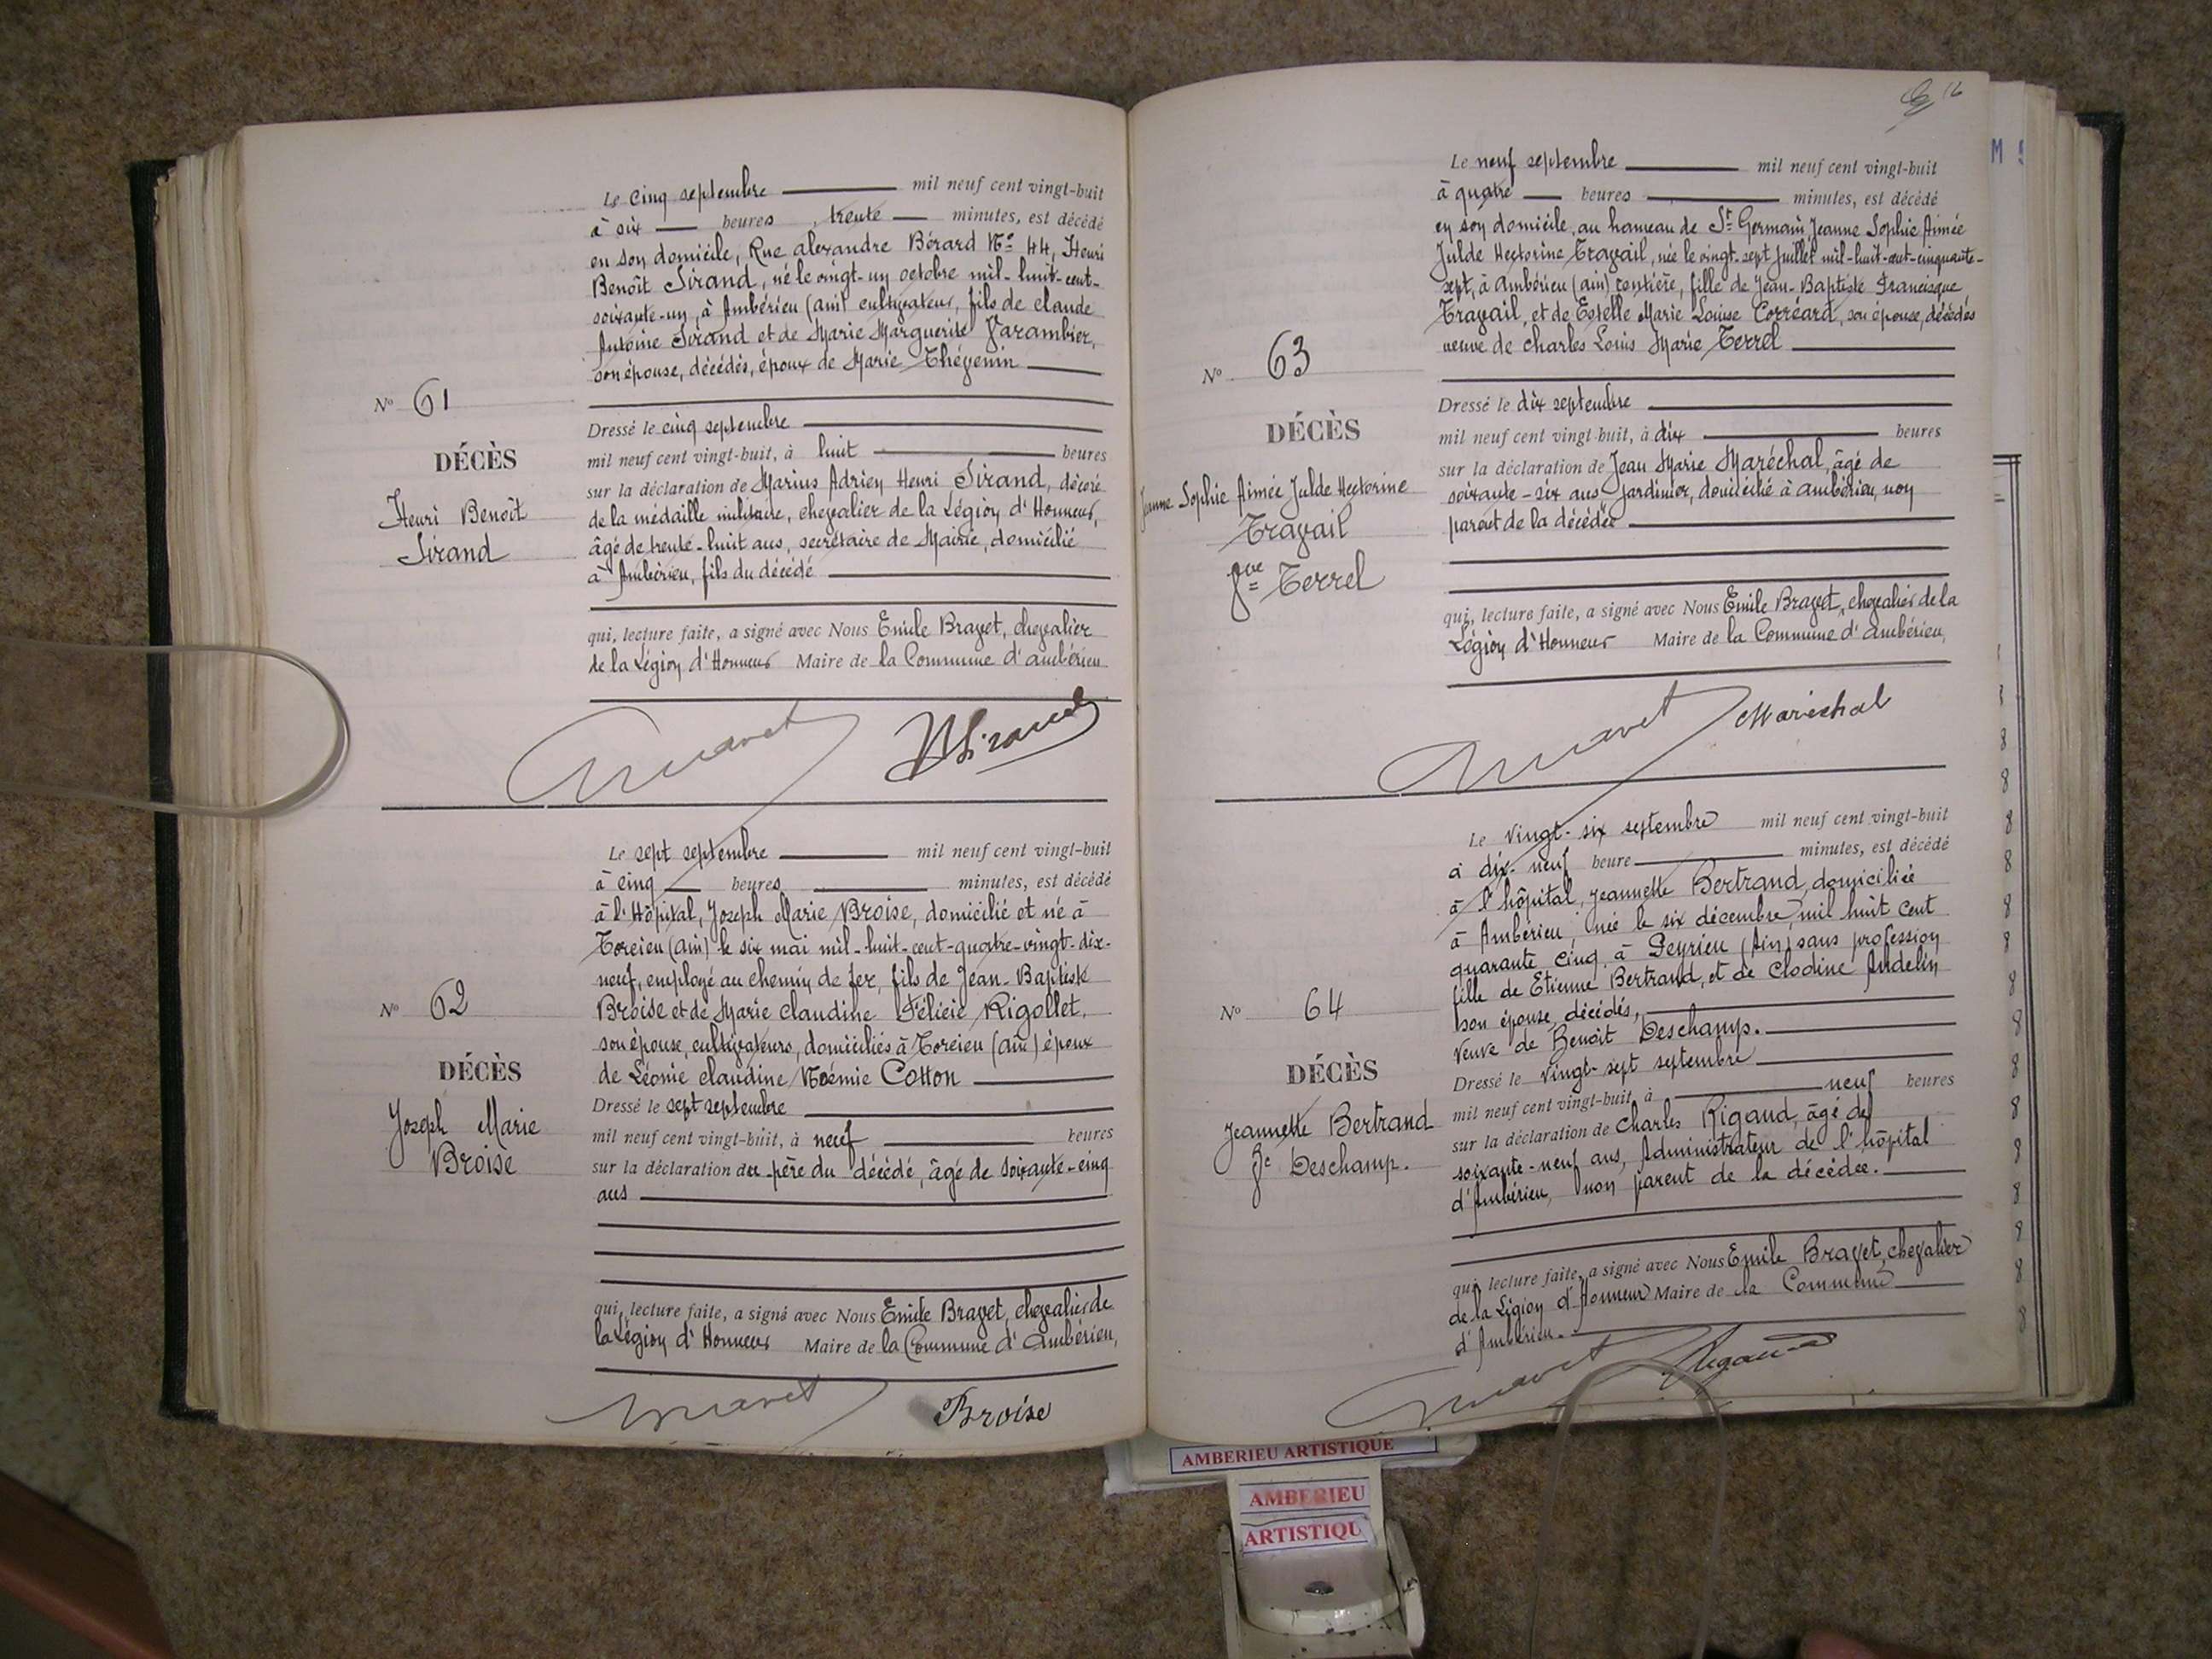 Le cinq septembre mil neuf cent vingt-huit
à six heures trente minutes, est décédé
en son domicile, Rue alexandre Bérard No 44, Henri
Benoît Sirand, né le vingt-un octobre mil-huit-cent-
soixante-un, à Ambérieu (ain) cultivateur, fils de claude
Antoine Sirand et de Marie Marguerite Varambier,
son épouse, décédés, époux de Marie Thévenin
No 61
DÉCÈS
Henri Benoît
Sirand
Dressé le cinq septembre
mil neuf cent vingt-huit, à huit heures
sur la déclaration de Marius Adrien Henri Sirand, décoré
de la médaille militaire, chevalier de la Légion d'Honneur,
âgé de trente-huit ans, secrétaire de Mairie, domicilié
à Ambérieu, fils du décédé
qui, lecture faite, a signé avec Nous Emile Bravet, chevalier
de la Légion d'Honneur Maire de la Commune d'ambérieu
Bravet Sirand
Le sept septembre mil neuf cent vingt-huit
à cinq heures minutes, est décédé
à l'Hôpital, Joseph Marie Broise, domicilié et né à
Torcieu (ain) le six mai mil-huit-cent-quatre-vingt-dix-
neuf, employé au chemin de fer, fils de Jean-Baptiste
Broise et de Marie claudine Félicie Rigollet,
son épouse, cultivateurs, domiciliés à Torcieu (ain) époux
de Léonie claudine Noémie Cotton
No 62
DÉCÈS
Joseph Marie
Broise
Dressé le sept septembre
mil neuf cent vingt-huit, à neuf heures
sur la déclaration du père du décédé, âgé de soixante-cinq
ans
qui, lecture faite, a signé avec Nous Emile Bravet, chevalier de
la Légion d'Honneur Maire de la Commune d'ambérieu,
Bravet Broise
Le neuf septembre mil neuf cent vingt-huit
à quatre heures minutes, est décédé
en son domicile, au hameau de St Germain, Jeanne Sophie Aimée
Julde Hectorine Travail, née le vingt-sept Juillet mil-huit-cent-cinquante-
sept, à ambérieu (ain) rentière, fille de Jean-Baptiste Francisque
Travail, et de Estelle Marie Louise Corréard, son épouse, décédés
veuve de charles Louis Marie Terrel
No 63
DÉCÈS
Jeanne Sophie Aimée Julde Hectorine
Travail
Vve Terrel
Dressé le dix septembre
mil neuf cent vingt-huit, à dix heures
sur la déclaration de Jean Marie Maréchal, âgé de
soixante-six ans jardinier, domicilié à ambérieu, non
parent de la décédée
qui, lecture faite, a signé avec Nous Emile Bravet, chevalier de la
Légion d'Honneur Maire de la Commune d'ambérieu,
Bravet Maréchal
Le vingt-six septembre mil neuf cent vingt-huit
à dix-neuf heure minutes, est décédé
à l'hôpital, Jeannette Bertrand, domiciliée
à Ambérieu née le six décembre mil huit cent
quarante cinq à Peyrieu (Ain) sans profession
fille de Etienne Bertrand, et de Clodine Andelin
son épouse, décédés,
Veuve de Benoit Deschamp.
No 64
DÉCÈS
Jeannette Bertrand
Ve Deschamp.
Dressé le vingt-sept septembre
mil neuf cent vingt-huit, à neuf heures
sur la déclaration de Charles Rigaud, âgé de
soixante-neuf ans, Administrateur de l'hôpital
d'Ambérieu, non parent de la décédée.
qui, lecture faite, a signé avec Nous Emile Bravet, chevalier
de la Légion d'Honneur Maire de la Commune
d'Ambérieu.
Bravet Rigaud
AMBERIEU ARTISTIQUE
AMBERIEU
ARTISTIQU